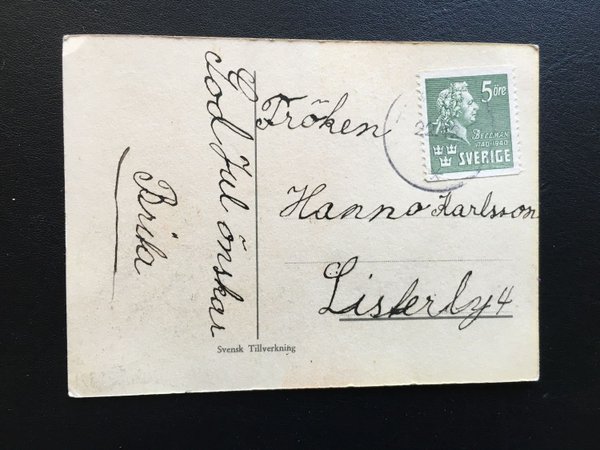 God Jul önskar
Brita
Fröken
Hanna Karlsson
Listerby 4
Svensk Tillverkning
5 öre
BELLMAN
1740-1940
SVERIGE